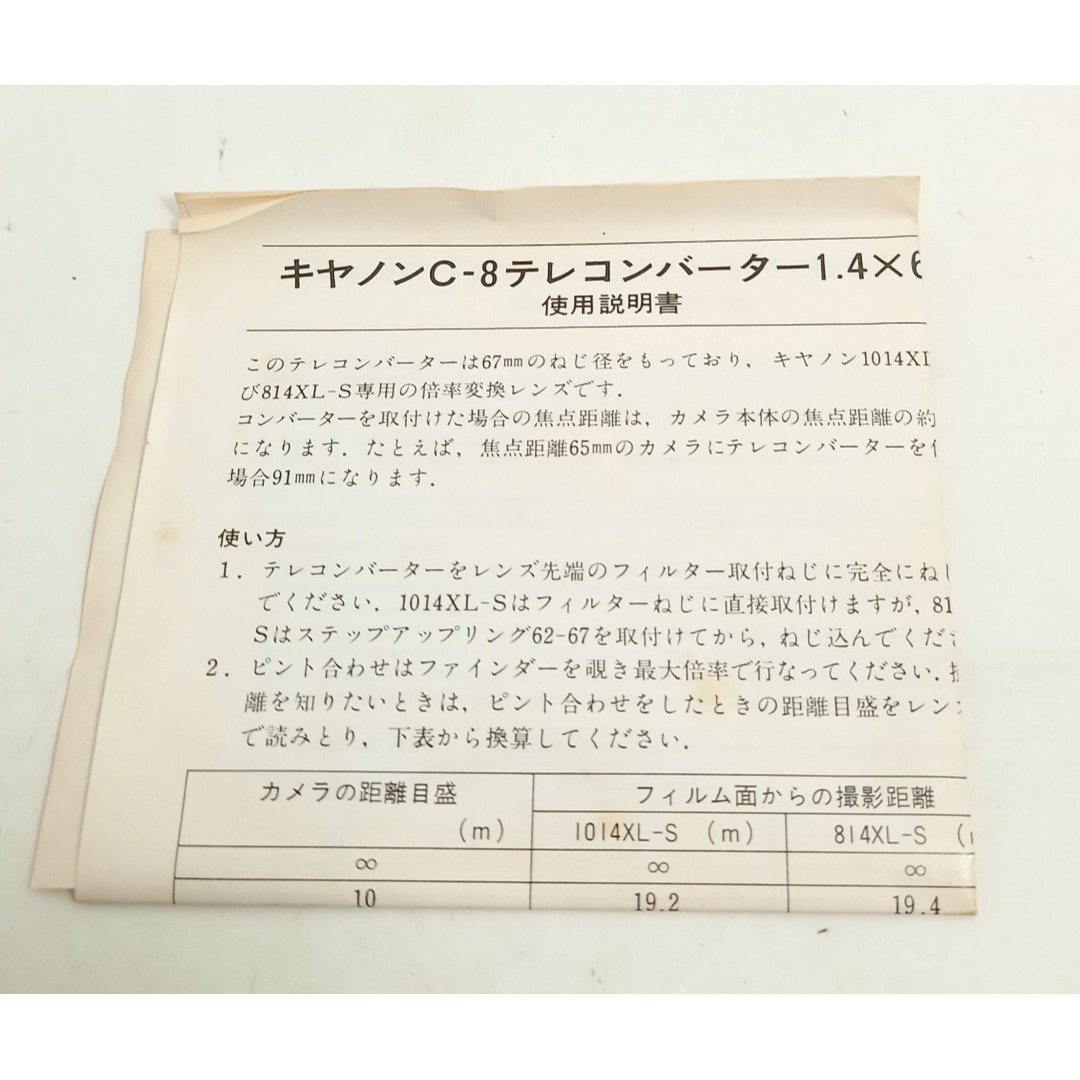 キヤノンC-8テレコンバーター1.4×6
使用説明書
このテレコンバーターは67mmのねじ径をもっており，キヤノン1014XL
び814XL-S専用の倍率変換レンズです．
コンバーターを取付けた場合の焦点距離は，カメラ本体の焦点距離の約
になります．たとえば，焦点距離65mmのカメラにテレコンバーターを
場合91mmになります．
使い方
1．テレコンバーターをレンズ先端のフィルター取付ねじに完全にねじ
でください．1014XL-Sはフィルターねじに直接取付けますが，81
Sはステップアップリング62-67を取付けてから，ねじ込んでくださ
2．ピント合わせはファインダーを覗き最大倍率で行なってください．
離を知りたいときは，ピント合わせをしたときの距離目盛をレンズ
で読みとり，下表から換算してください．
カメラの距離目盛 フィルム面からの撮影距離
(m) 1014XL-S (m) 814XL-S (
∞ ∞ ∞
10 19.2 19.4